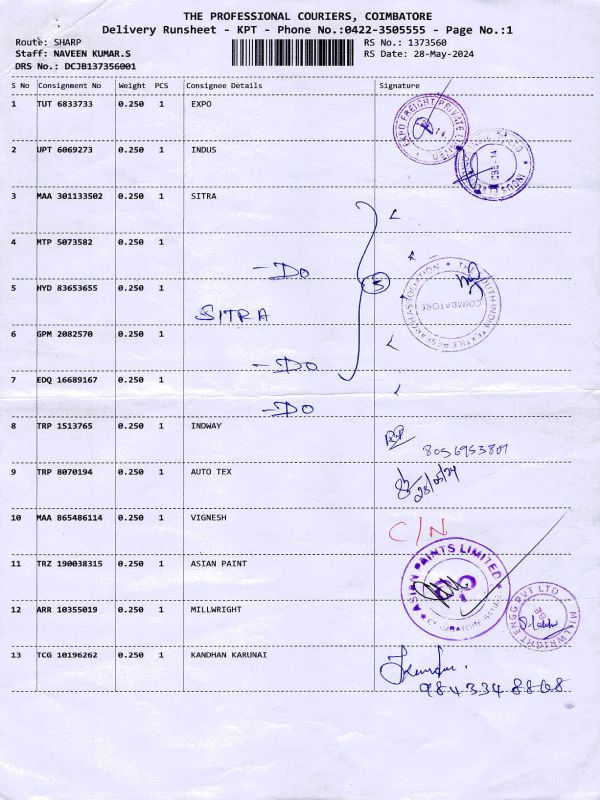 THE PROFESSIONAL COURIERS, COIMBATORE
Delivery Runsheet - KPT - Phone No.:0422-3505555 - Page No.:1
Route: SHARP RS No.: 1373560
Staff: NAVEEN KUMAR.S RS Date: 28-May-2024
DRS No.: DCJB137356001
S No Consignment No Weight PCS Consignee Details Signature
1 TUT 6833733 0.250 1 EXPO
2 UPT 6069273 0.250 1 INDUS
3 MAA 301133502 0.250 1 SITRA
4 MTP 5073582 0.250 1
- DO
5 HYD 83653655 0.250 1
5
SITRA
6 GPM 2082570 0.250 1
- DO
7 EDQ 16689167 0.250 1
- DO
8 TRP 1513765 0.250 1 INDWAY
9 TRP 8070194 0.250 1 AUTO TEX
28/05/24
10 MAA 865486114 0.250 1 VIGNESH
C/N
11 TRZ 190038315 0.250 1 ASIAN PAINT
ASIAN PAINTS LIMITED
12 ARR 10355019 0.250 1 MILLWRIGHT
MILLWRIGHT ENGG PVT LTD
13 TCG 10196262 0.250 1 KANDHAN KARUNAI
984334 8868
COIMBATORE